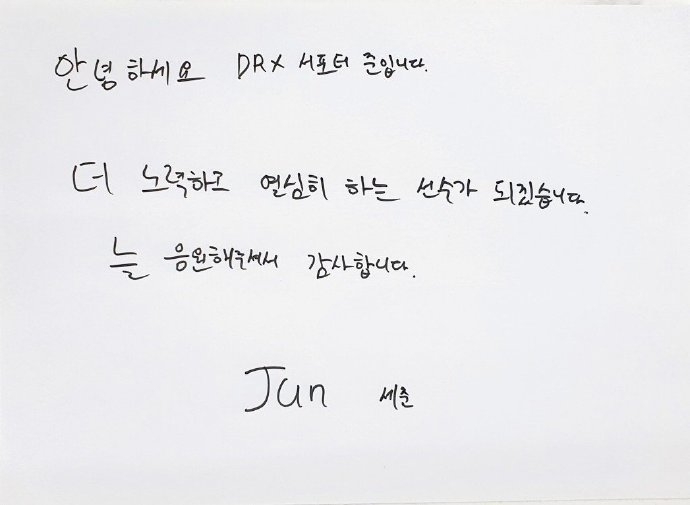 안녕하세요 DRX 서포터 준입니다.
더 노력하고 열심히 하는 선수가 되겠습니다.
늘 응원해주셔서 감사합니다.
Jun 세준